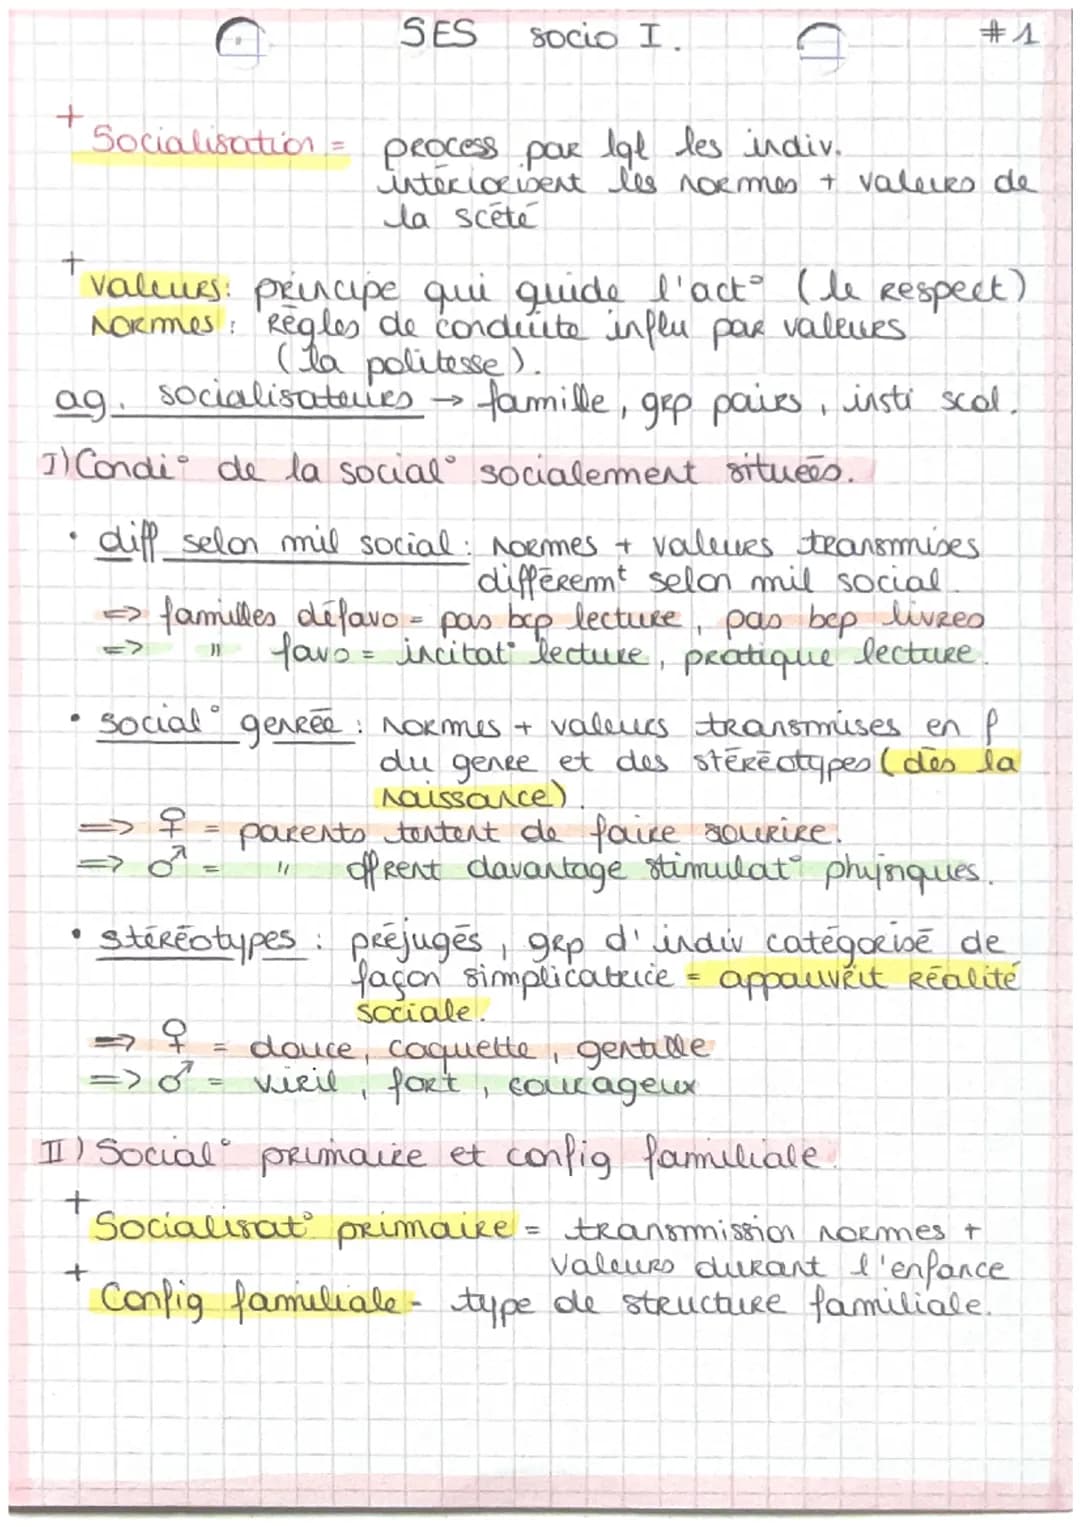 SES socio I. #1
+ Socialisation = process par lql les indiv.
intériorisent les normes + valeurs de
la scété
+ valeurs: principe qui guide l'act° (le respect)
Normes : Règles de conduite influ par valeurs
(la politesse).
ag. socialisateurs → famille, grp pairs, insti scol.
I) Condi° de la social° socialement situées.
• diff selon mil social : normes + valeurs transmises
différemt selon mil social.
=> familles défavo = pas bcp lecture, pas bcp livres
=> " favo = incitat° lecture, pratique lecture.
• social° genrée : Normes + valeurs transmises en f
du genre et des stéréotypes (dès la
naissance).
=> ♀ = parents tentent de faire sourire.
=> ♂ = " offrent davantage stimulat° physiques.
• stéréotypes : préjugés, grp d'indiv catégorisé de
façon simplicatrice = appauvrit Réalité
sociale.
=> ♀ = douce, coquette, gentille
=> ♂ = viril, fort, courageux
II) Social° primaire et config familiale.
+ Socialisat° primaire = transmission normes +
valeurs durant l'enfance
+ Config familiale - type de structure familiale.